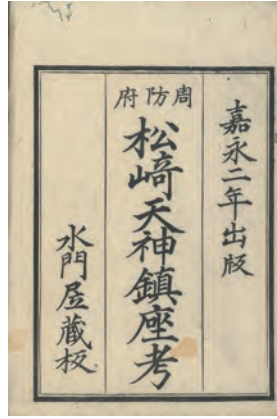 嘉永二年出版
周防府
松﨑天神鎮座考
水門居蔵板